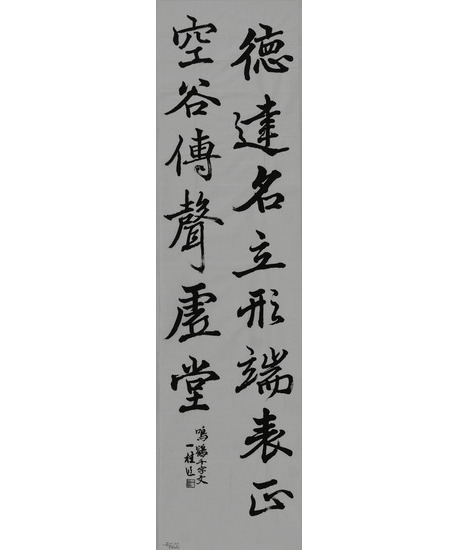 德建名立形端表正
空谷傳聲虛堂
鳴鶴千字文
一桂